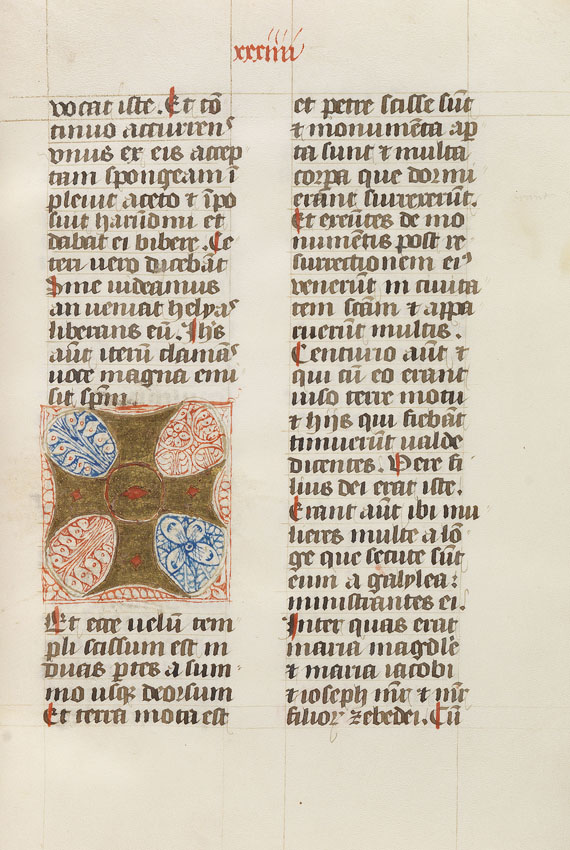 xxxiiii
vocat iste. Et cō
tinuo accurrens
vnus ex eis accep
tam spongeam ī
pleuit aceto et īpo
suit harūdini et
dabat ei bibere. Ce
teri vero dicebāt
Sine uideamus
an ueniat helyas
liberans eū. Ihs
aūt iterū clamās
uoce magna emi
sit spm̄.
Et ecce uelū tem
pli scissum est in
duas ꝑtes a sum
mo usqꝫ deorsum
Et terra mota est
et petre scisse sūt
⁊ monumēta ap
ta sunt ⁊ multa
corꝑa que dormi
erant surrexerūt.
Et exeūtes de mo
numētis post re
surrectionem eiꝰ
venerūt in ciuita
tem scām ⁊ appa
ruerūt multis.
Centurio aūt ⁊
qui cū eo erant
uiso terre motu
⁊ hijs qui fiebāt
timuerūt ualde
dicentes. Vere fi
lius dei erat iste.
Erant aūt ibi mu
lieres multe a lō
ge que secute sūt
eum a galylea:
ministrantes ei.
Inter quas erat
maria magdlē
⁊ maria iacobi
⁊ ioseph mr̄ ⁊ mr̄
filioꝝ zebedei. Cū